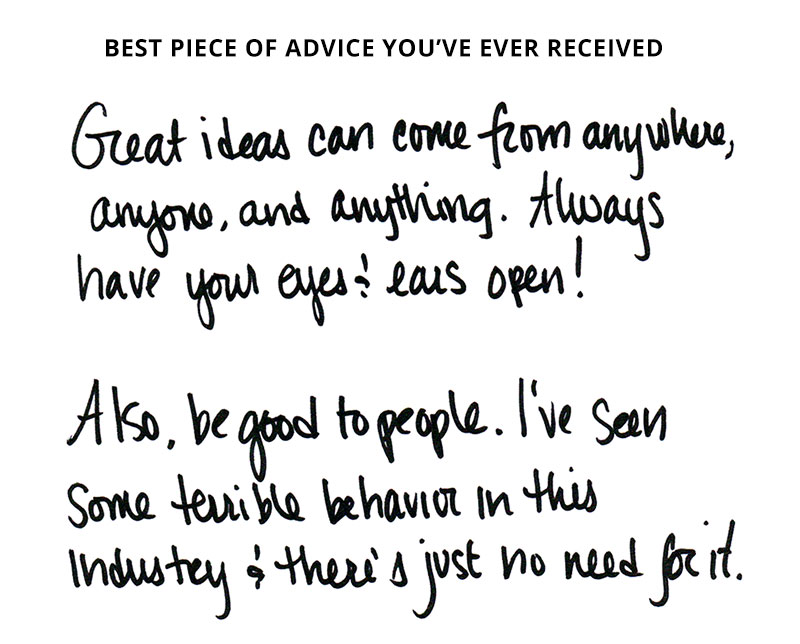 BEST PIECE OF ADVICE YOU'VE EVER RECEIVED
Great ideas can come from anywhere,
anyone, and anything. Always
have your eyes & ears open!
Also, be good to people. I've seen
some terrible behavior in this
industry & there's just no need for it.